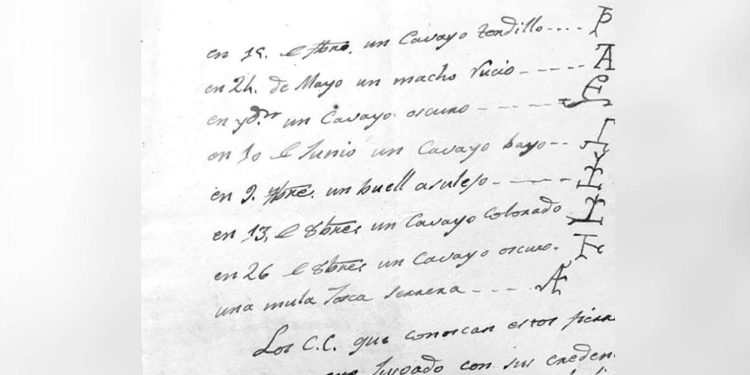 en 19. de fbro. un Cavayo tordillo....
en 24. de Mayo un macho rucio -----
en yd.m un Cavayo oscuro ----
en 10 de Junio un Cavayo bayo--
en 9. 7bre. un buell asulejo -----
en 13, de 8bre un Cavayo colorado
en 26 de 8bre un Cavayo oscuro.
una mula serrera ----
Los C.C. que conoscan estos fierr
Jusgado con sus creden